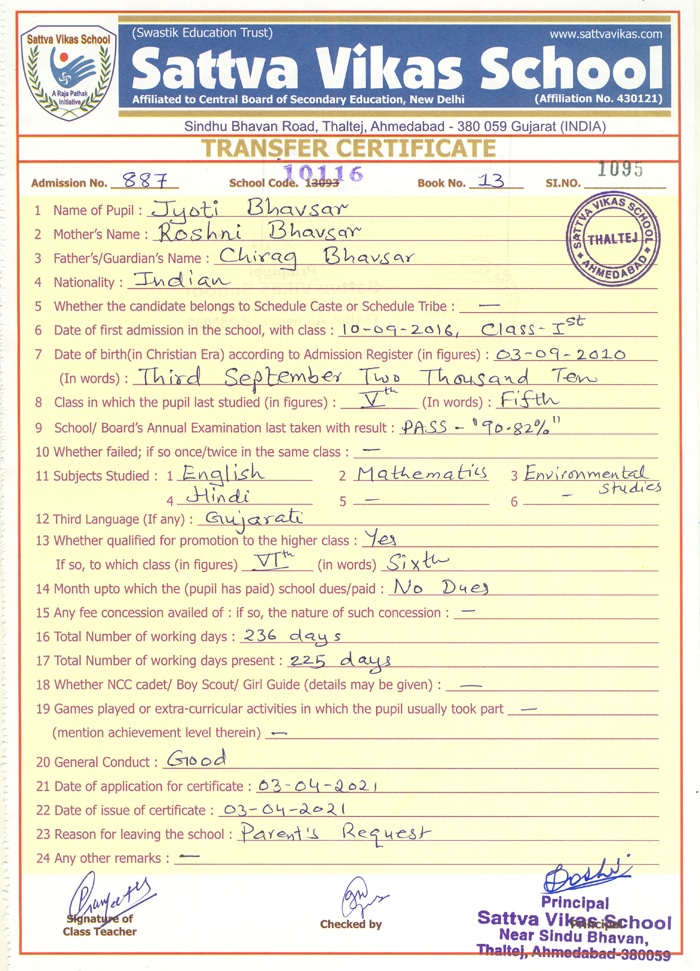 Sattva Vikas School
A Raja Pathak
Initiative
(Swastik Education Trust) www.sattvavikas.com
Sattva Vikas School
Affiliated to Central Board of Secondary Education, New Delhi (Affiliation No. 430121)
Sindhu Bhavan Road, Thaltej, Ahmedabad - 380 059 Gujarat (INDIA)
TRANSFER CERTIFICATE
Admission No. 887 School Code. 13093 10116 Book No. 13 SI.NO. 1095
SATTVA VIKAS SCHOOL
THALTEJ
AHMEDABAD
1 Name of Pupil : Jyoti Bhavsar
2 Mother's Name : Roshni Bhavsar
3 Father's/Guardian's Name : Chirag Bhavsar
4 Nationality : Indian
5 Whether the candidate belongs to Schedule Caste or Schedule Tribe : —
6 Date of first admission in the school, with class : 10-09-2016, Class-Ist
7 Date of birth(in Christian Era) according to Admission Register (in figures) : 03-09-2010
(In words) : Third September Two Thousand Ten
8 Class in which the pupil last studied (in figures) : Vth (In words) : Fifth
9 School/ Board's Annual Examination last taken with result : PASS - "90.82%"
10 Whether failed; if so once/twice in the same class : —
11 Subjects Studied : 1 English 2 Mathematics 3 Environmental Studies
4 Hindi 5 — 6 –
12 Third Language (If any) : Gujarati
13 Whether qualified for promotion to the higher class : Yes
If so, to which class (in figures) VIth (in words) Sixth
14 Month upto which the (pupil has paid) school dues/paid : No Dues
15 Any fee concession availed of : if so, the nature of such concession : —
16 Total Number of working days : 236 days
17 Total Number of working days present : 225 days
18 Whether NCC cadet/ Boy Scout/ Girl Guide (details may be given) : —
19 Games played or extra-curricular activities in which the pupil usually took part —
(mention achievement level therein) —
20 General Conduct : Good
21 Date of application for certificate : 03-04-2021
22 Date of issue of certificate : 03-04-2021
23 Reason for leaving the school : Parent's Request
24 Any other remarks : —
Signature of
Class Teacher
Checked by
Principal
Principal
Sattva Vikas School
Near Sindu Bhavan,
Thaltej, Ahmedabad-380059